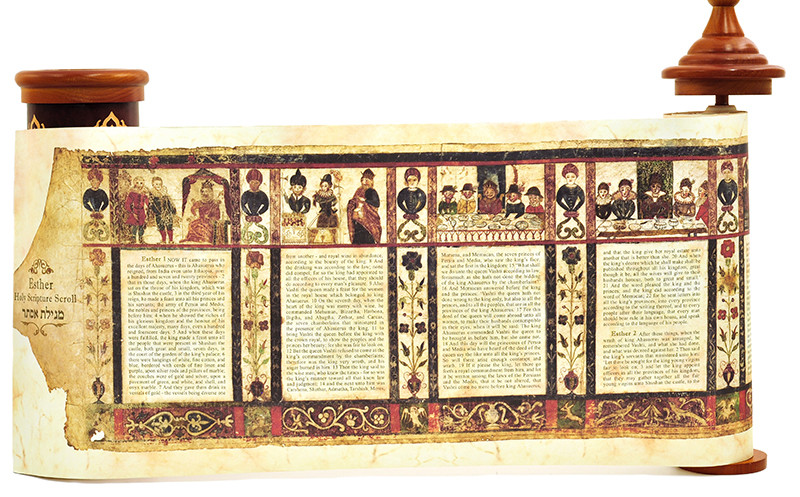 Esther
Holy Scripture Scroll
מגילת אסתר
Esther 1 NOW IT came to pass in
the days of Ahasuerus - this is Ahasuerus who
reigned, from India even unto Ethiopia, over
a hundred and seven and twenty provinces - 2
that in those days, when the king Ahasuerus
sat on the throne of his kingdom, which was
in Shushan the castle, 3 in the third year of his
reign, he made a feast unto all his princes and
his servants; the army of Persia and Media,
the nobles and princes of the provinces, being
before him; 4 when he showed the riches of
his glorious kingdom and the honour of his
excellent majesty, many days, even a hundred
and fourscore days. 5 And when these days
were fulfilled, the king made a feast unto all
the people that were present in Shushan the
castle, both great and small, seven days, in
the court of the garden of the king's palace; 6
there were hangings of white, fine cotton, and
blue, bordered with cords of fine linen and
purple, upon silver rods and pillars of marble;
the couches were of gold and silver, upon a
pavement of green, and white, and shell, and
onyx marble. 7 And they gave them drink in
vessels of gold - the vessels being diverse one
from another - and royal wine in abundance,
according to the bounty of the king. 8 And
the drinking was according to the law; none
did compel; for so the king had appointed to
all the officers of his house, that they should
do according to every man's pleasure. 9 Also
Vashti the queen made a feast for the women
in the royal house which belonged to king
Ahasuerus. 10 On the seventh day, when the
heart of the king was merry with wine, he
commanded Mehuman, Bizzetha, Harbona,
Bigtha, and Abagtha, Zethar, and Carcas,
the seven chamberlains that ministered in
the presence of Ahasuerus the king, 11 to
bring Vashti the queen before the king with
the crown royal, to show the peoples and the
princes her beauty; for she was fair to look on.
12 But the queen Vashti refused to come at the
king's commandment by the chamberlains;
therefore was the king very wroth, and his
anger burned in him. 13 Then the king said to
the wise men, who knew the times - for so was
the king's manner toward all that knew law
and judgment; 14 and the next unto him was
Carshena, Shethar, Admatha, Tarshish, Meres,
Marsena, and Memucan, the seven princes of
Persia and Media, who saw the king's face,
and sat the first in the kingdom: 15 'What shall
we do unto the queen Vashti according to law,
forasmuch as she hath not done the bidding
of the king Ahasuerus by the chamberlains?'
16 And Memucan answered before the king
and the princes: 'Vashti the queen hath not
done wrong to the king only, but also to all the
princes, and to all the peoples, that are in all the
provinces of the king Ahasuerus. 17 For this
deed of the queen will come abroad unto all
women, to make their husbands contemptible
in their eyes, when it will be said: The king
Ahasuerus commanded Vashti the queen to
be brought in before him, but she came not.
18 And this day will the princesses of Persia
and Media who have heard of the deed of the
queen say the like unto all the king's princes.
So will there arise enough contempt and
wrath. 19 If it please the king, let there go
forth a royal commandment from him, and let
it be written among the laws of the Persians
and the Medes, that it be not altered, that
Vashti come no more before king Ahasuerus,
and that the king give her royal estate unto
another that is better than she. 20 And when
the king's decree which he shall make shall be
published throughout all his kingdom, great
though it be, all the wives will give to their
husbands honour, both to great and small.'
21 And the word pleased the king and the
princes; and the king did according to the
word of Memucan; 22 for he sent letters into
all the king's provinces, into every province
according to the writing thereof, and to every
people after their language, that every man
should bear rule in his own house, and speak
according to the language of his people.
Esther 2 After these things, when the
wrath of king Ahasuerus was assuaged, he
remembered Vashti, and what she had done,
and what was decreed against her. 2 Then said
the king's servants that ministered unto him:
'Let there be sought for the king young virgins
fair to look on; 3 and let the king appoint
officers in all the provinces of his kingdom,
that they may gather together all the fair
young virgins unto Shushan the castle, to the